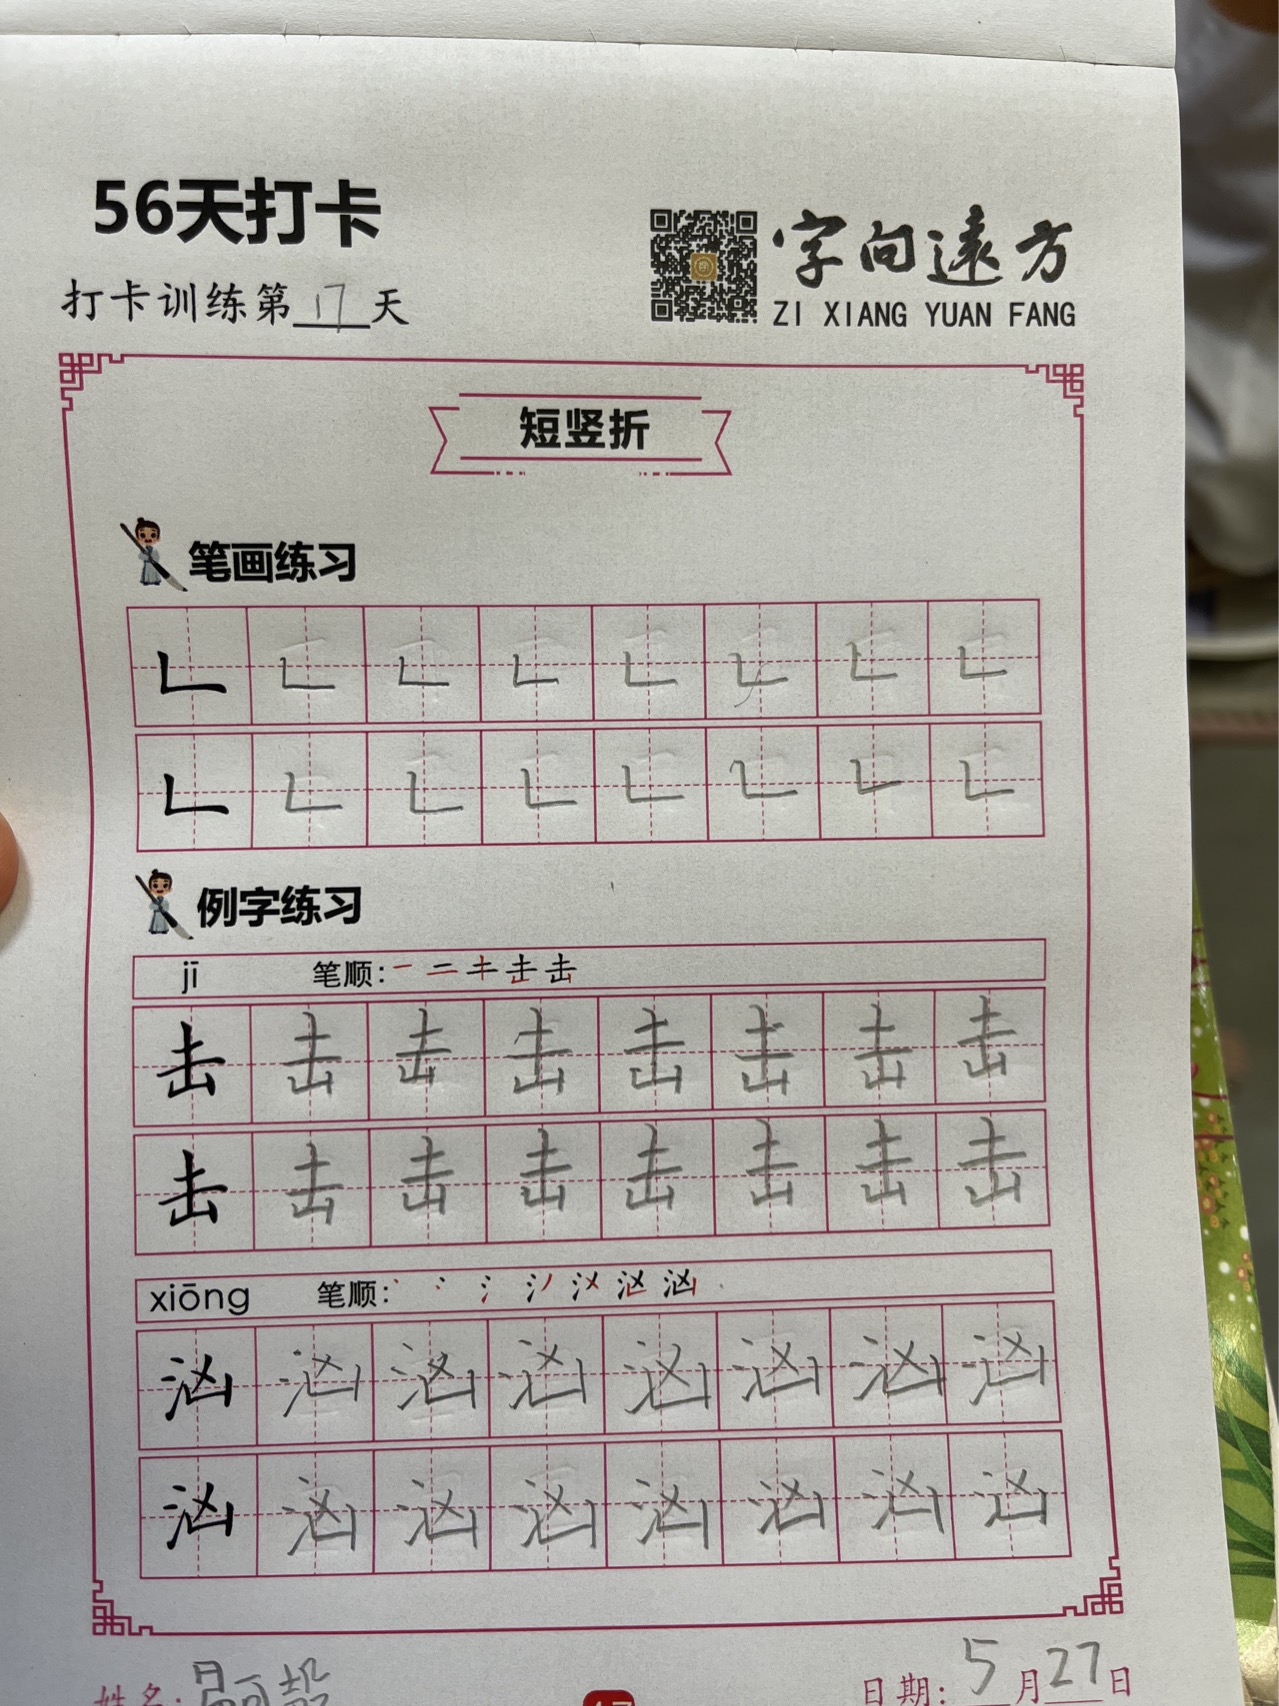 56天打卡
字向遠方
ZI XIANG YUAN FANG
打卡训练第17天
短竖折
笔画练习
𠃊 𠃊 𠃊 𠃊 𠃊 𠃊 𠃊 𠃊
𠃊 𠃊 𠃊 𠃊 𠃊 𠃊 𠃊 𠃊
例字练习
jī 笔顺: 一 二 キ 击 击
击 击 击 击 击 击 击 击
击 击 击 击 击 击 击 击
xiōng 笔顺:
汹 汹 汹 汹 汹 汹 汹 汹
汹 汹 汹 汹 汹 汹 汹 汹
姓名:
17
日期: 5月27日